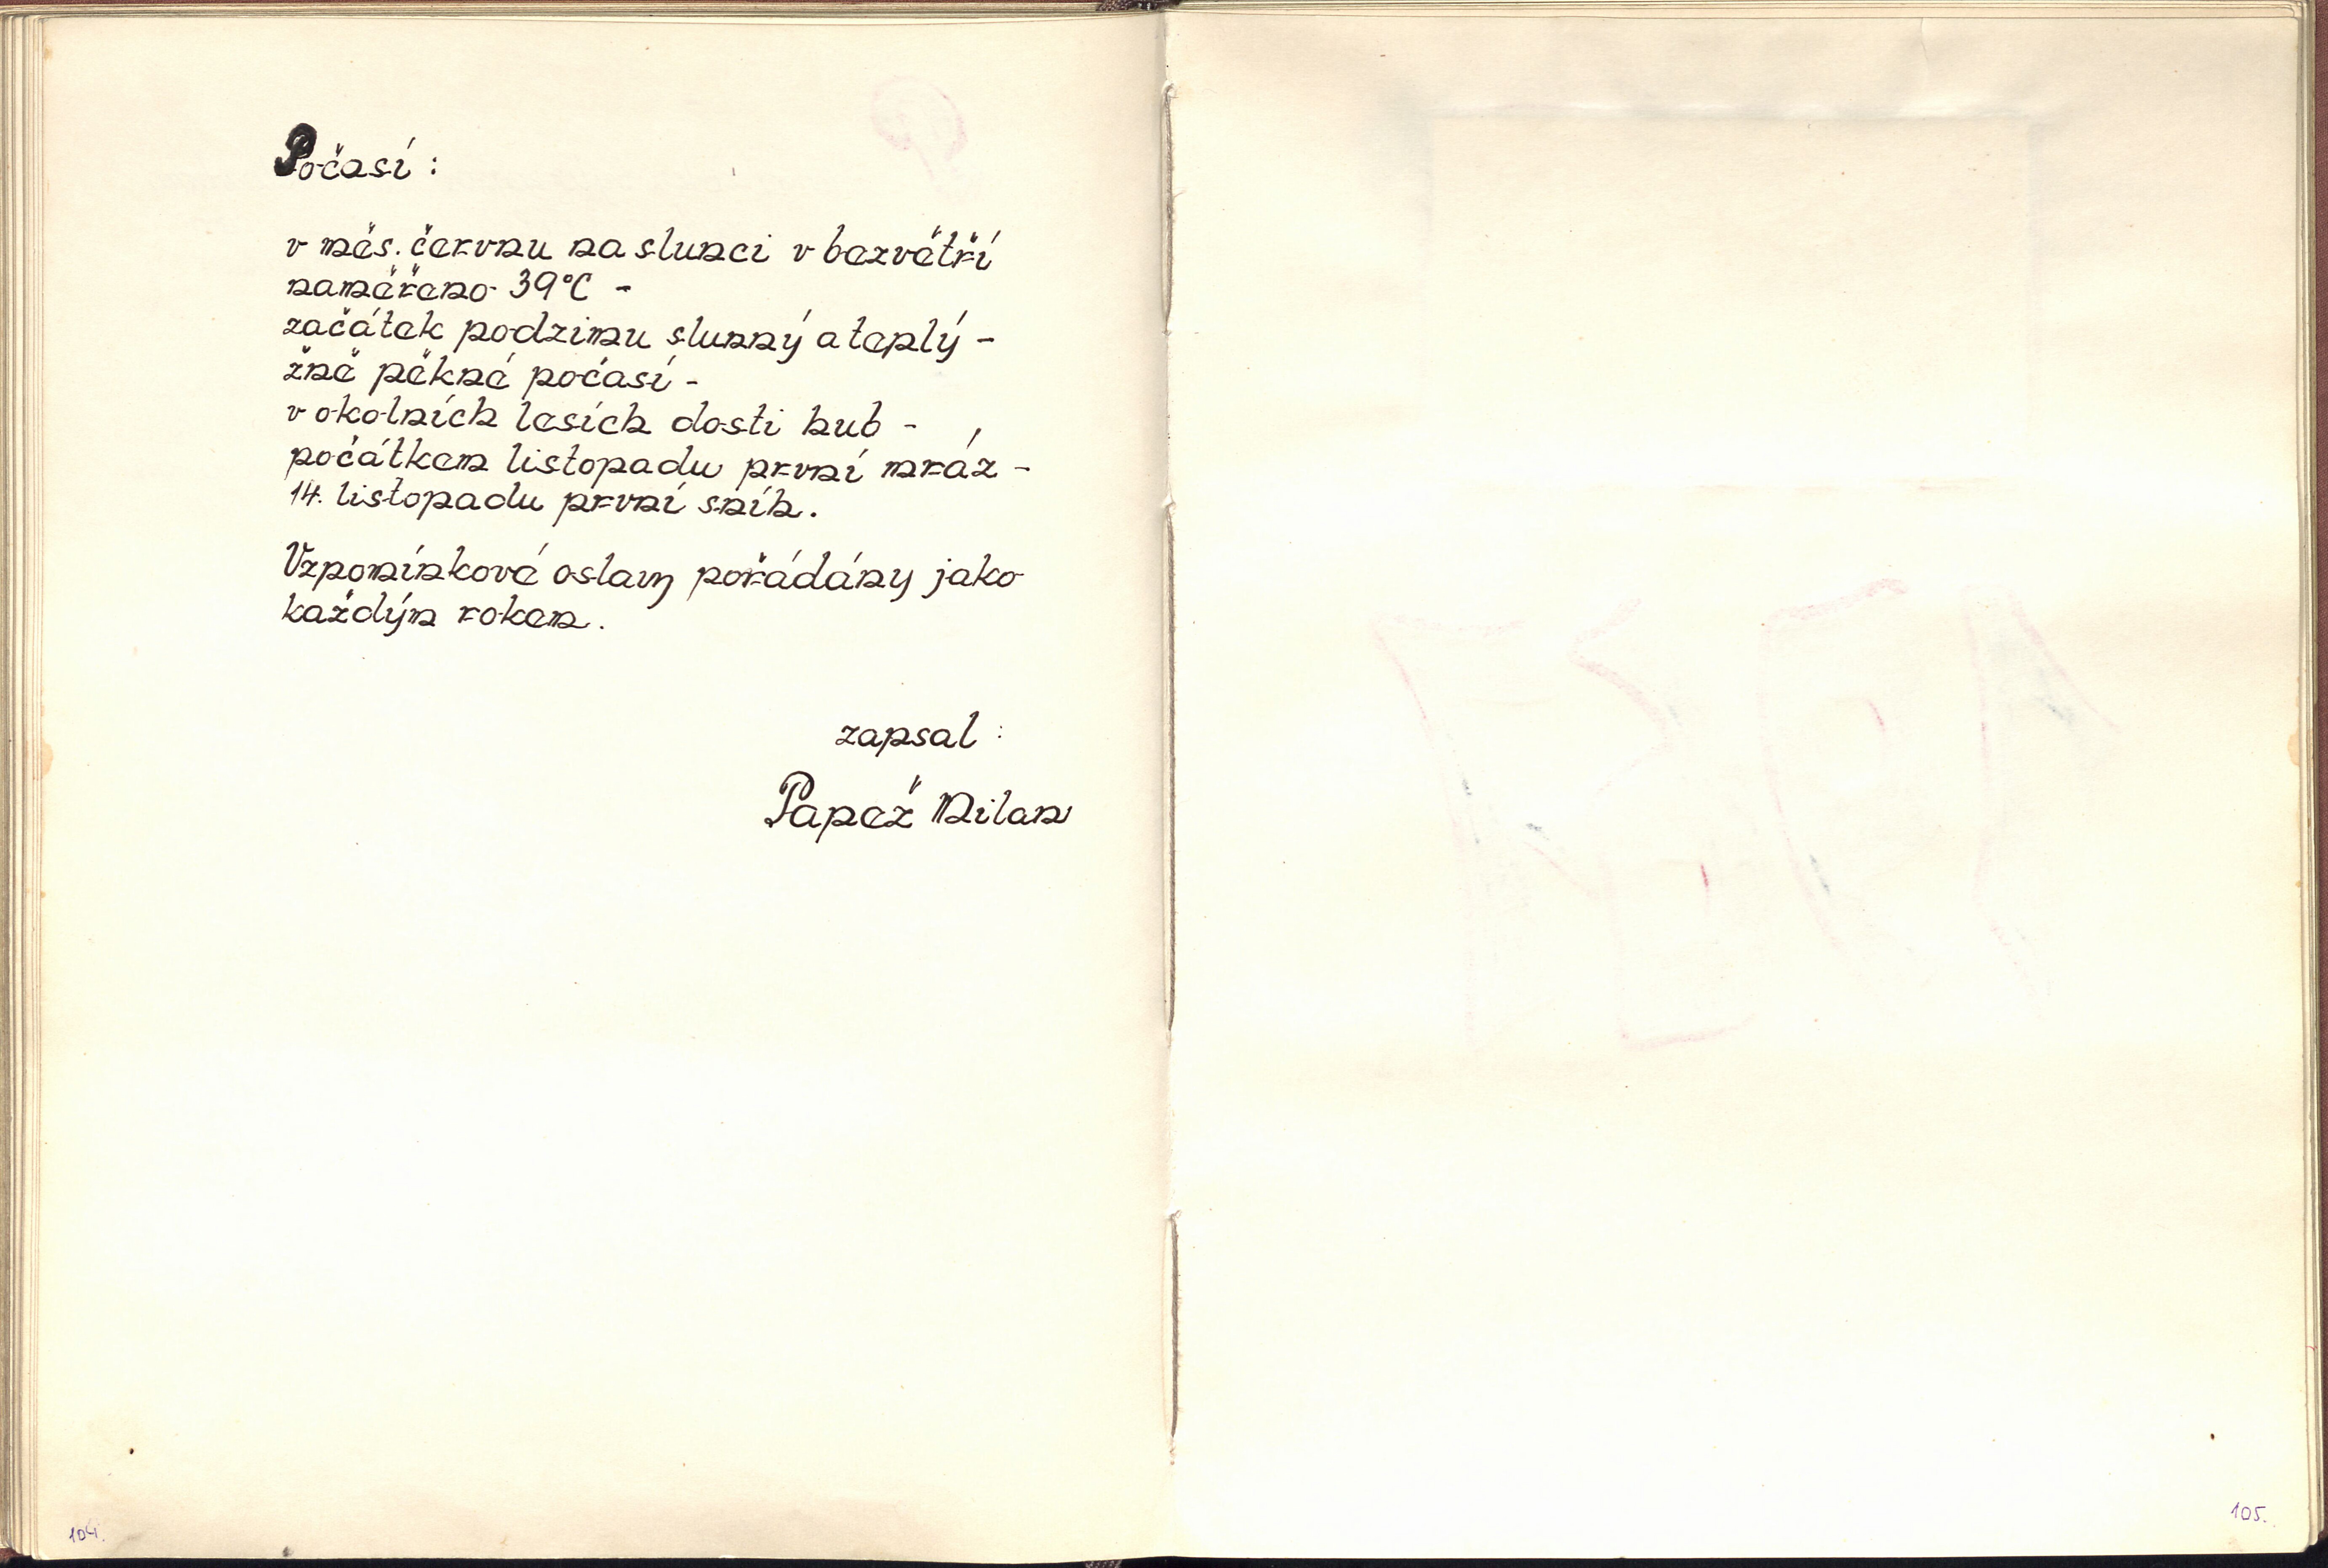 Počasí :
v měs. červnu na slunci v bezvětří
naměřeno 39°C -
začátek podzimu slunný a teplý -
žně pěkné počasí -
v okolních lesích dosti hub -
počátkem listopadu první mráz -
14. listopadu první sníh.
Vzpomínkové oslavy pořádány jako
každým rokem.
zapsal :
Papež Milan
104.
105.